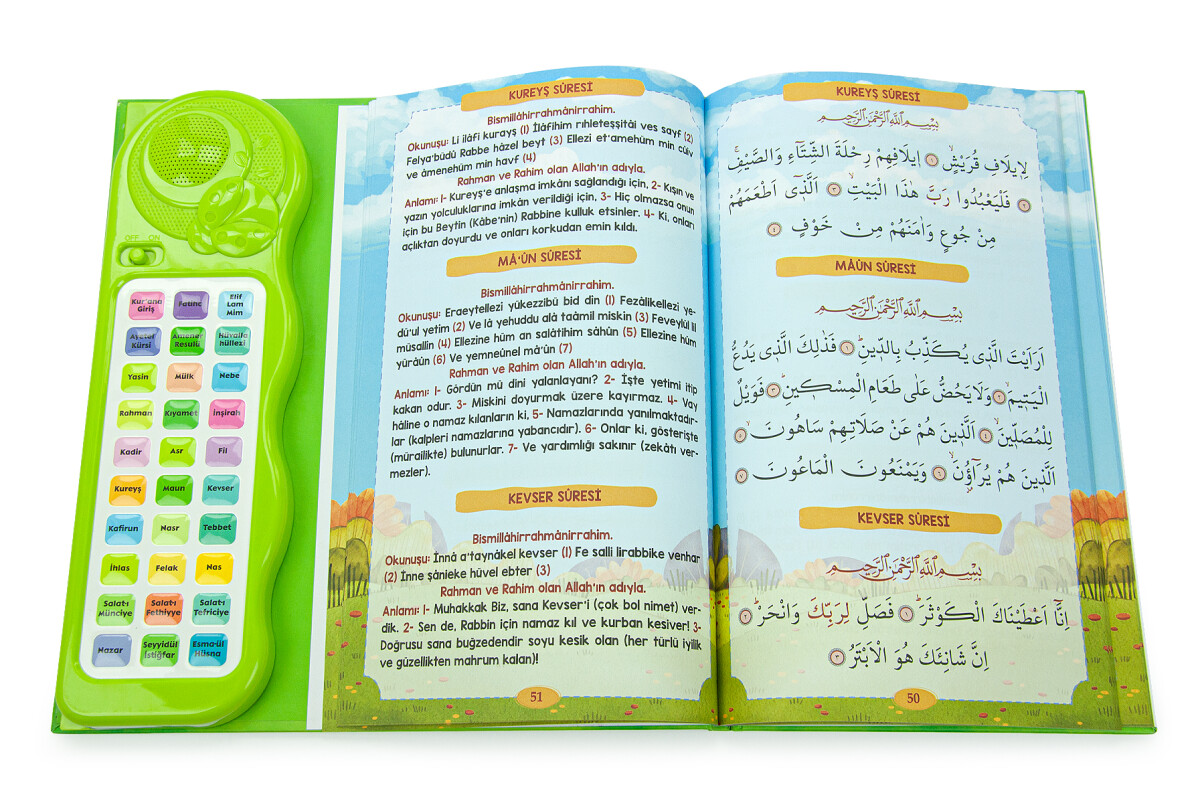 OFF ON
Kur'ana Giriş
Fatiha
Elif Lam Mim
Ayetel Kürsi
Amener Resulü
Hüvallahüllezi
Yasin
Mülk
Nebe
Rahman
Kıyamet
İnşirah
Kadir
Asr
Fil
Kureyş
Maun
Kevser
Kafirun
Nasr
Tebbet
İhlas
Felak
Nas
Salat-ı Münciye
Salat-ı Fethiyye
Salat-ı Tefriciye
Nazar
Seyyidül İstiğfar
Esma-ül Hüsna
KUREYŞ SÛRESİ
Bismillâhirrahmânirrahim.
Okunuşu: Li ilâfi kurayş (1) İlâfihim rıhleteşşitâi ves sayf (2)
Felya'büdû Rabbe hâzel beyt (3) Ellezi et'amehüm min cûiv
ve âmenehüm min havf (4)
Rahman ve Rahim olan Allah'ın adıyla.
Anlamı: 1- Kureyş'e anlaşma imkânı sağlandığı için, 2- Kışın ve
yazın yolculuklarına imkân verildiği için, 3- Hiç olmazsa onun
için bu Beytin (Kâbe'nin) Rabbine kulluk etsinler. 4- Ki, onları
açlıktan doyurdu ve onları korkudan emin kıldı.
MÂ'ÛN SÛRESİ
Bismillâhirrahmânirrahim.
Okunuşu: Eraeytellezi yükezzibü bid din (1) Fezâlikellezi ye-
dû'ul yetim (2) Ve lâ yehuddu alâ taâmil miskin (3) Feveylül lil
müsallin (4) Ellezine hüm an salâtihim sâhûn (5) Ellezine hüm
yürâûn (6) Ve yemneûnel mâ'ûn (7)
Rahman ve Rahim olan Allah'ın adıyla.
Anlamı: 1- Gördün mü dini yalanlayanı? 2- İşte yetimi itip
kakan odur. 3- Miskini doyurmak üzere kayırmaz. 4- Vay
hâline o namaz kılanların ki, 5- Namazlarında yanılmaktadır-
lar (kalpleri namazlarına yabancıdır). 6- Onlar ki, gösterişte
(mürailikte) bulunurlar. 7- Ve yardımlığı sakınır (zekâtı ver-
mezler).
KEVSER SÛRESİ
Bismillâhirrahmânirrahim.
Okunuşu: İnnâ a'taynâkel kevser (1) Fe salli lirabbike venhar
(2) İnne şânieke hüvel ebter (3)
Rahman ve Rahim olan Allah'ın adıyla.
Anlamı: 1- Muhakkak Biz, sana Kevser'i (çok bol nimet) ver-
dik. 2- Sen de, Rabbin için namaz kıl ve kurban kesiver! 3-
Doğrusu sana buğzedendir soyu kesik olan (her türlü iyilik
ve güzellikten mahrum kalan)!
51
KUREYŞ SÛRESİ
بِسْمِ اللّٰهِ الرَّحْمٰنِ الرَّحِيمِ
لِإِيلَافِ قُرَيْشٍ ١ اِيلَافِهِمْ رِحْلَةَ الشِّتَٓاءِ وَالصَّيْفِ
٢ فَلْيَعْبُدُوا رَبَّ هٰذَا الْبَيْتِ ٣ اَلَّذٖٓى اَطْعَمَهُمْ
مِنْ جُوعٍ وَاٰمَنَهُمْ مِنْ خَوْفٍ ٤
MÂÛN SÛRESİ
بِسْمِ اللّٰهِ الرَّحْمٰنِ الرَّحِيمِ
اَرَاَيْتَ الَّذٖى يُكَذِّبُ بِالدّٖينِ ١ فَذٰلِكَ الَّذٖى يَدُعُّ
الْيَتٖيمَ ٢ وَلَا يَحُضُّ عَلٰى طَعَامِ الْمِسْكٖينِ ٣ فَوَيْلٌ
لِلْمُصَلّٖينَ ٤ اَلَّذٖينَ هُمْ عَنْ صَلَاتِهِمْ سَاهُونَ ٥
اَلَّذٖينَ هُمْ يُرَٓاؤُنَ ٦ وَيَمْنَعُونَ الْمَاعُونَ ٧
KEVSER SÛRESİ
بِسْمِ اللّٰهِ الرَّحْمٰنِ الرَّحِيمِ
اِنَّٓا اَعْطَيْنَاكَ الْكَوْثَرَ ١ فَصَلِّ لِرَبِّكَ وَانْحَرْ ٢
اِنَّ شَانِئَكَ هُوَ الْاَبْتَرُ ٣
50